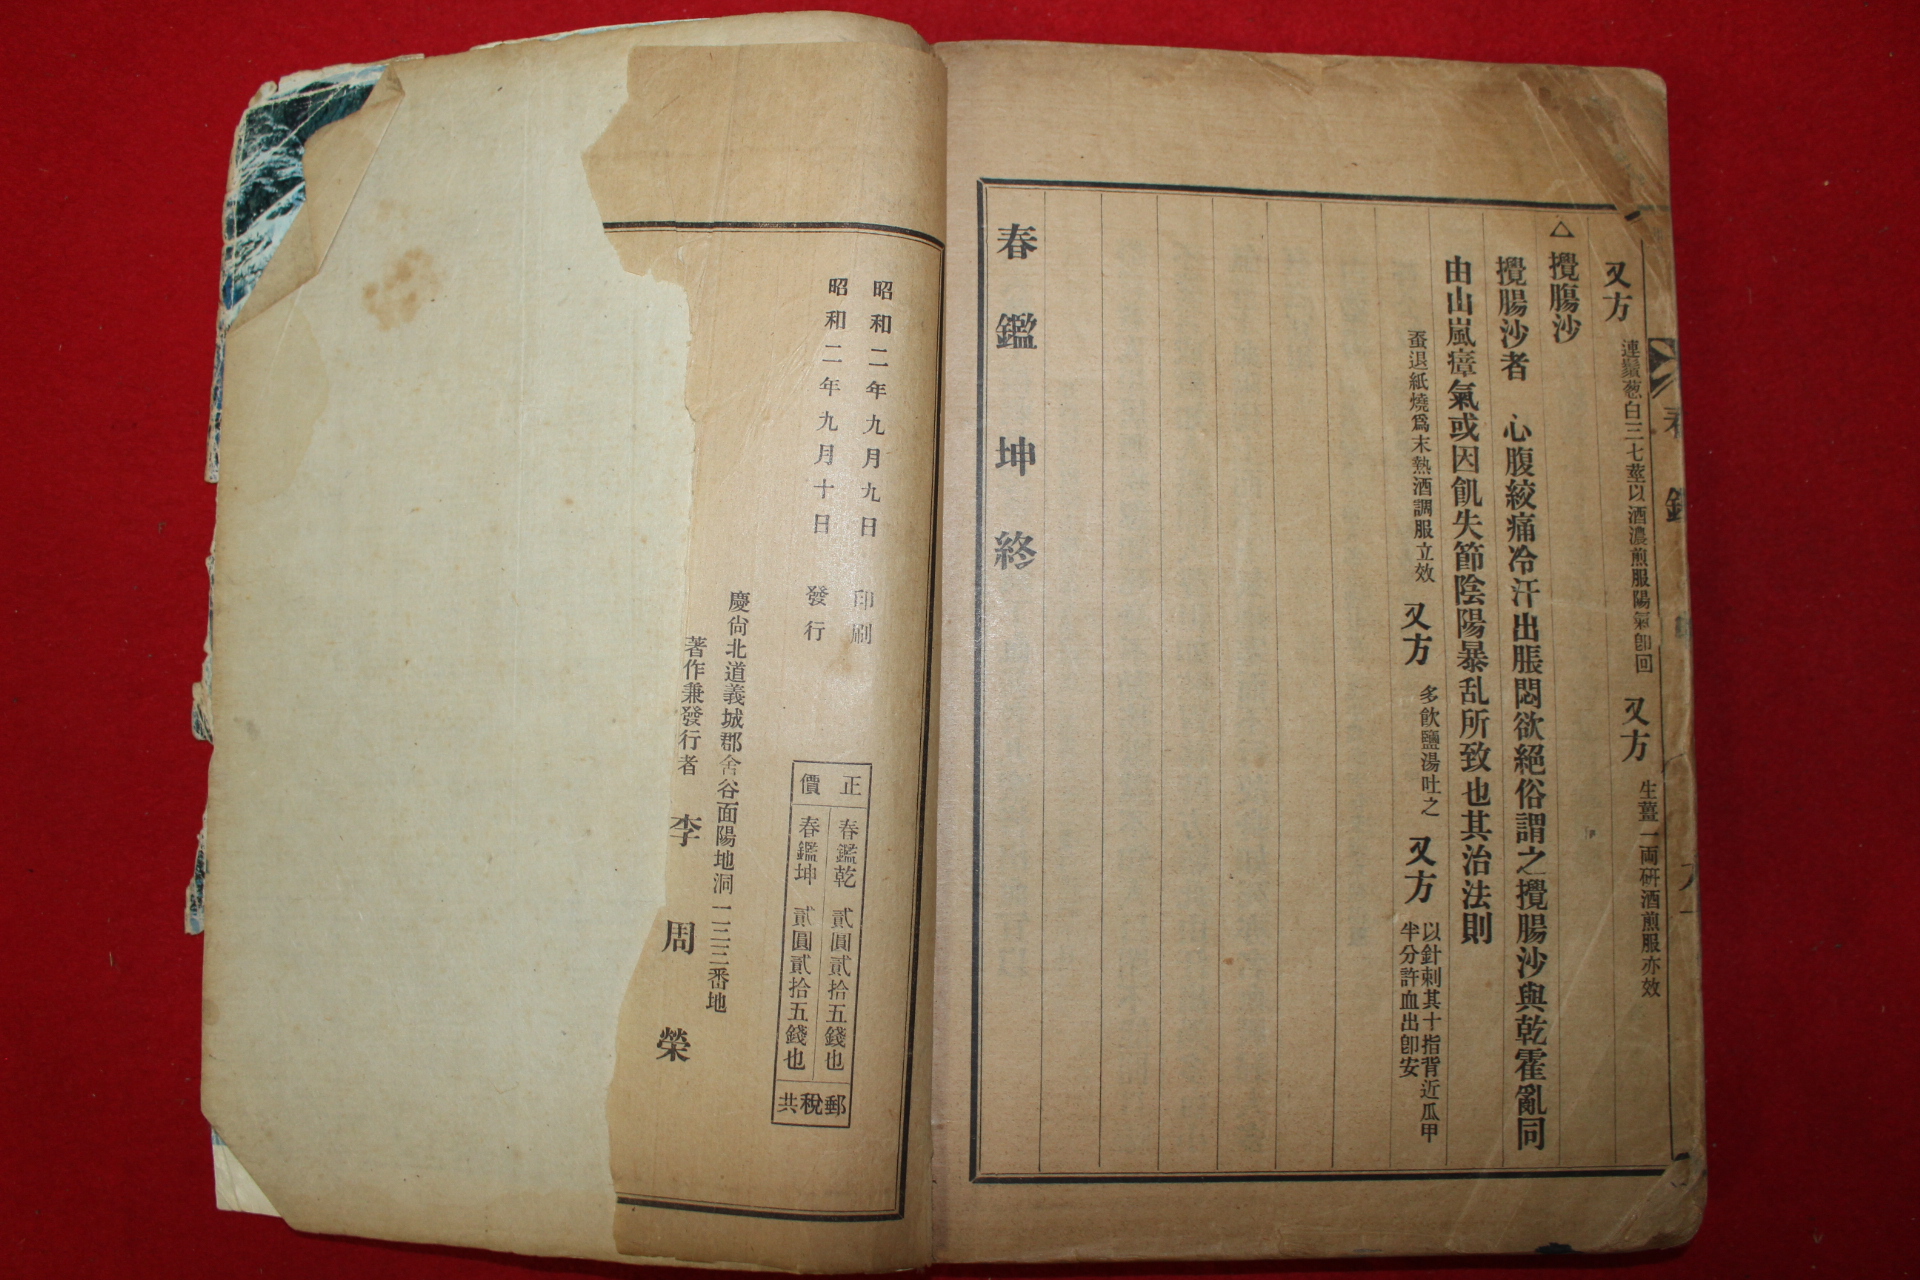 又方 連鬚葱白三七莖以酒濃煎服陽氣卽回 又方 生薑一両研酒煎服亦效
△攪膓沙
攪腸沙者 心腹絞痛冷汗出脹悶欲絕俗謂之攪腸沙與乾霍亂同
由山嵐瘴氣或因飢失節陰陽暴乱所致也其治法則
蚕退紙燒爲末熱酒調服立效 又方 多飮鹽湯吐之 又方 以針刺其十指背近瓜甲
半分許血出卽安
春鑑坤終
春鑑
昭和二年九月九日 印刷
昭和二年九月十日 發行
正價
春鑑乾 貳圓貳拾五錢也
春鑑坤 貳圓貳拾五錢也
郵稅共
慶尙北道義城郡舍谷面陽地洞一二三三番地
著作兼發行者 李周榮